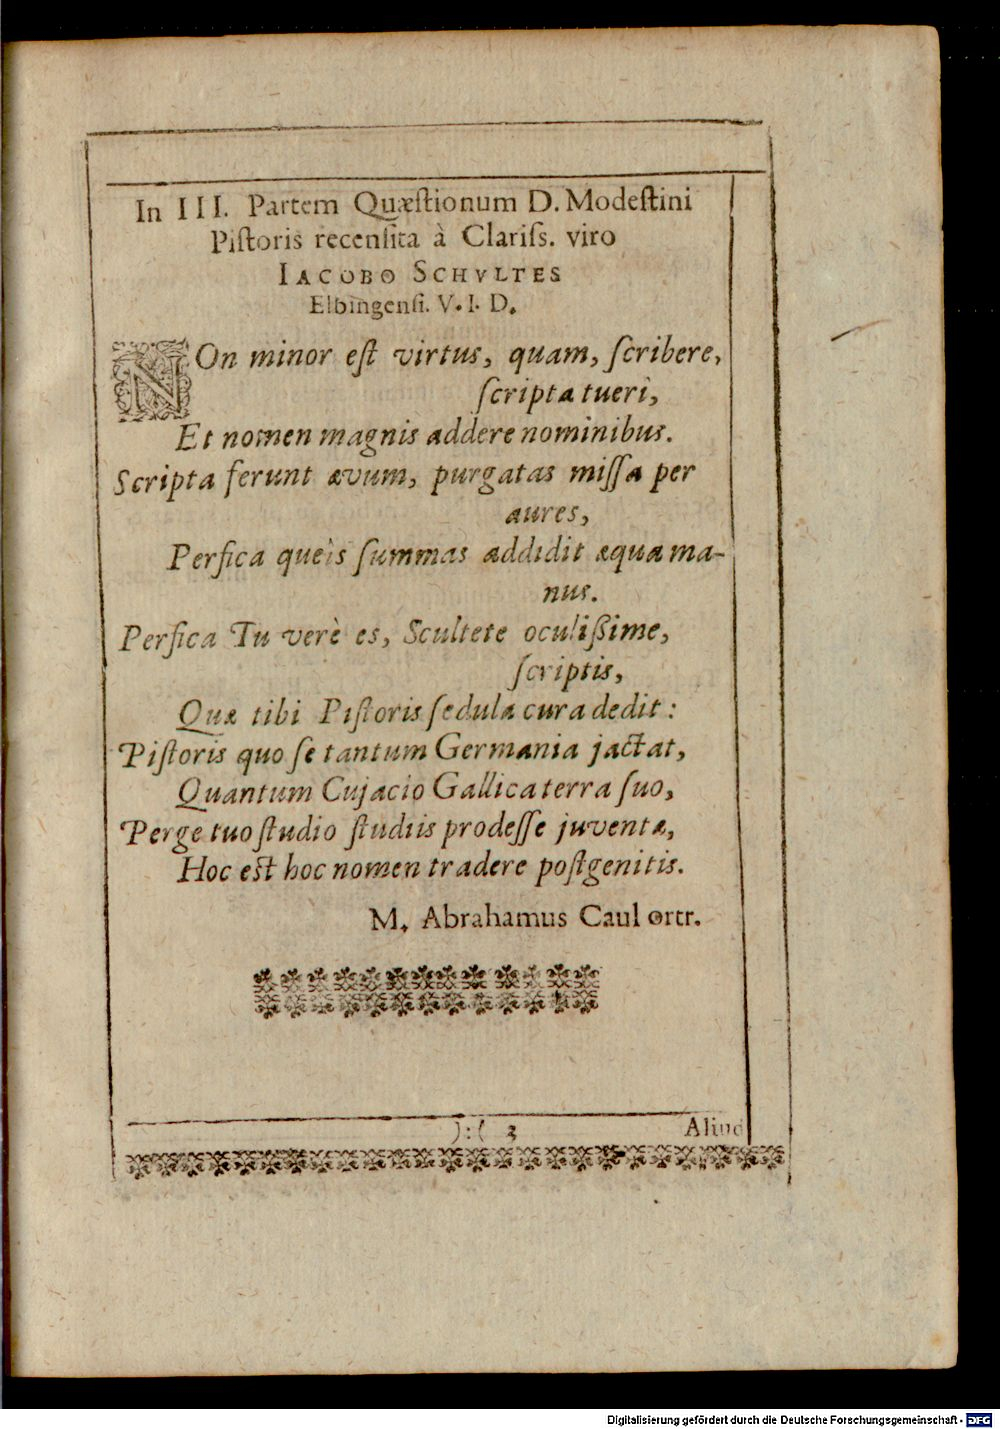 In III. Partem Quæſtionum D. Modeſtini
Piſtoris recenſita à Clariſs. viro
IACOBO SCHVLTES
Elbingenſi. V. I. D.
NOn minor eſt virtus, quam, ſcribere,
ſcripta tueri,
Et nomen magnis addere nominibus.
Scripta ferunt ævum, purgatas miſſa per
aures,
Perſica queîs ſummas addidit æqua ma-
nus.
Perſica Tu verè es, Scultete oculißime,
ſcriptis,
Quæ tibi Piſtoris ſedula cura dedit:
Piſtoris quo ſe tantum Germania jactat,
Quantum Cujacio Gallica terra ſuo,
Perge tuo ſtudio ſtudiis prodeſſe juventæ,
Hoc est hoc nomen tradere poſtgenitis.
M. Abrahamus
):( 3
Aliud
Digitalisierung gefördert durch die Deutsche Forschungsgemeinschaft - DFG